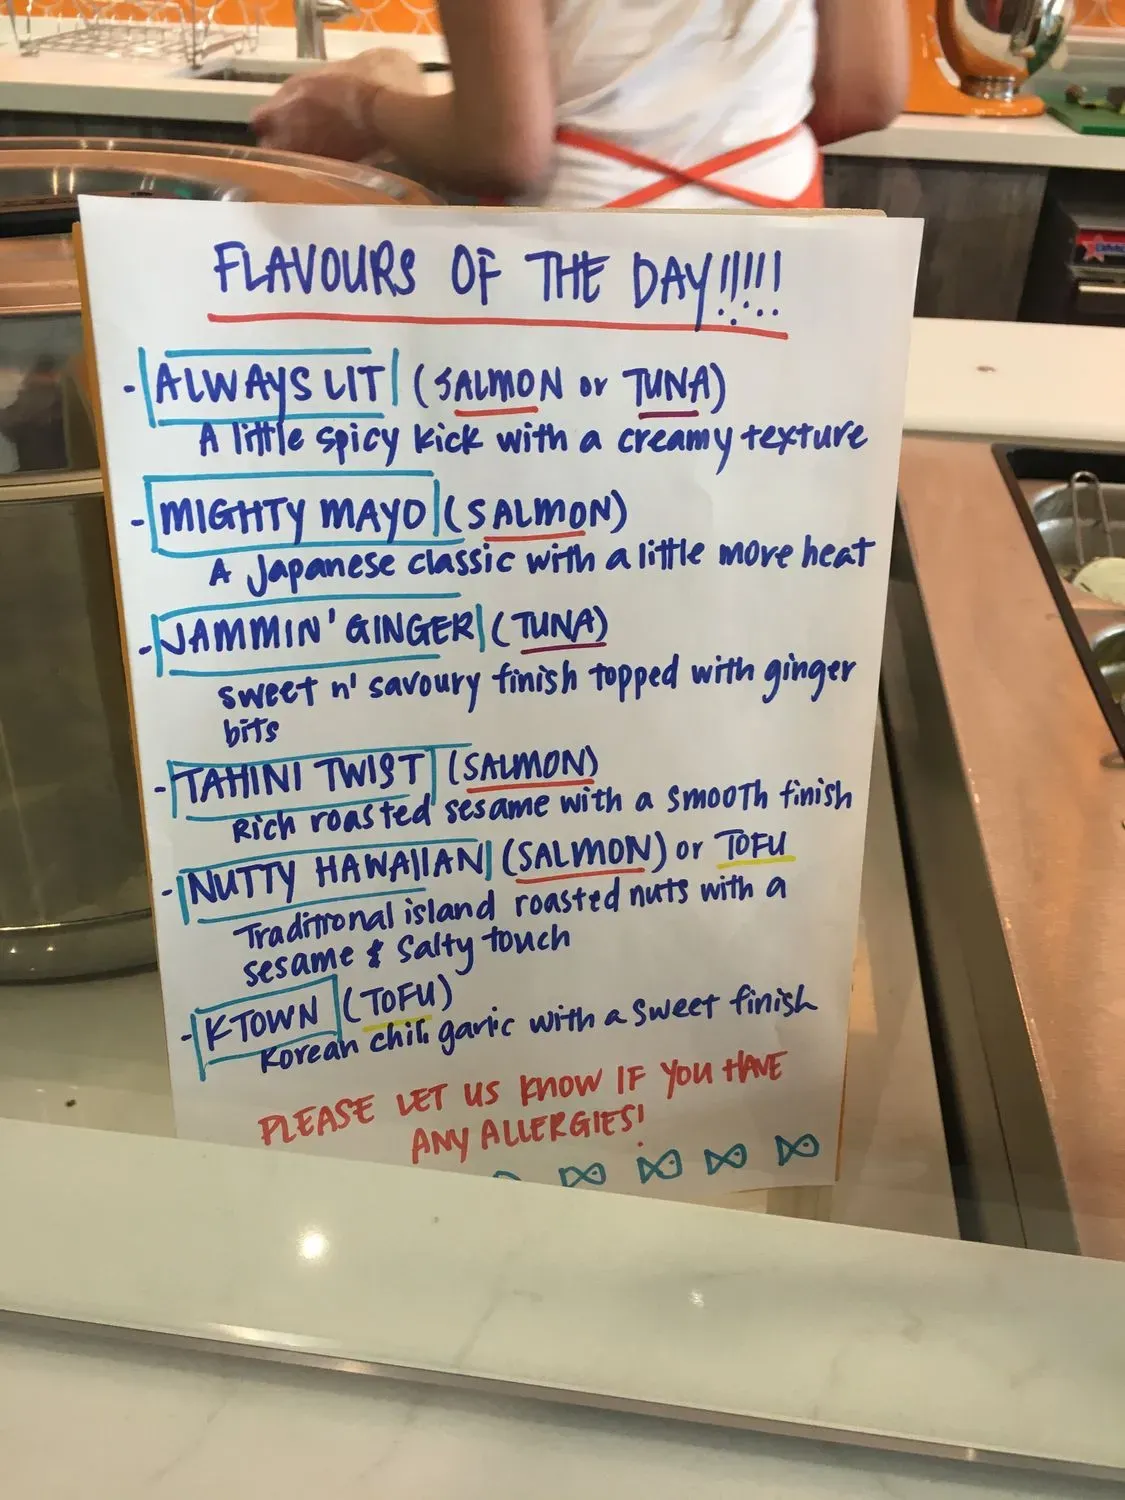 FLAVOURS OF THE DAY!!!!!
- ALWAYS LIT (SALMON or TUNA)
A little spicy kick with a creamy texture
- MIGHTY MAYO (SALMON)
A Japanese classic with a little more heat
- JAMMIN' GINGER (TUNA)
sweet n' savoury finish topped with ginger
bits
- TAHINI TWIST (SALMON)
Rich roasted sesame with a smooth finish
- NUTTY HAWAIIAN (SALMON) or TOFU
Traditional island roasted nuts with a
sesame & salty touch
- KTOWN (TOFU)
Korean chili garlic with a sweet finish
PLEASE LET US KNOW IF YOU HAVE
ANY ALLERGIES!